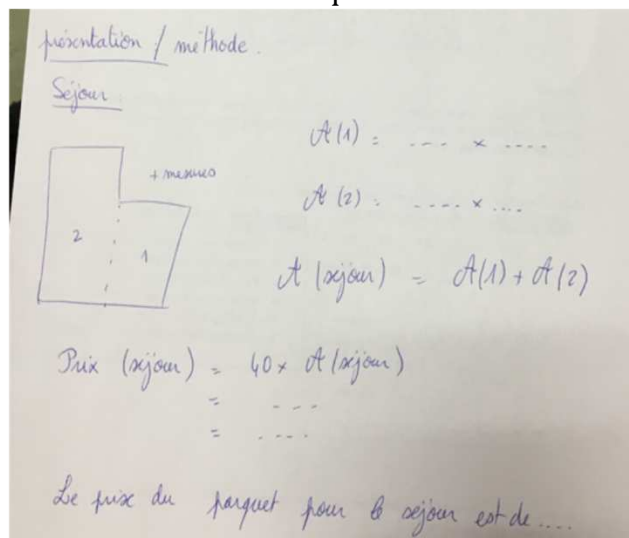 présentation / méthode.
Séjour
+ mesures
2
1
A(1) = .... × ....
A(2) = .... × ....
A (séjour) = A(1) + A(2)
Prix (séjour) = 40 × A (séjour)
= ...
= ....
Le prix du parquet pour le séjour est de ....